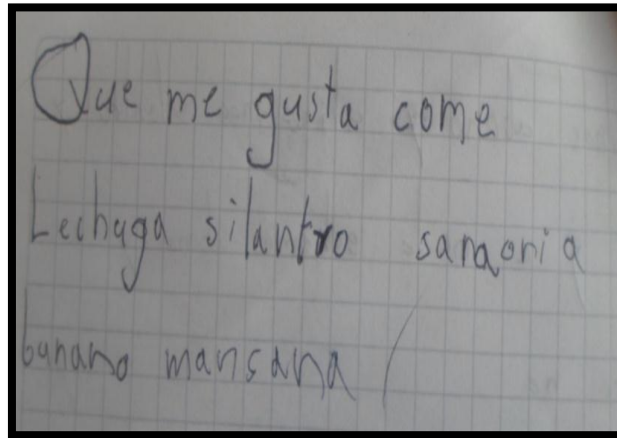 Que me gusta come
Lechuga silantro sanaoria
banano mansana